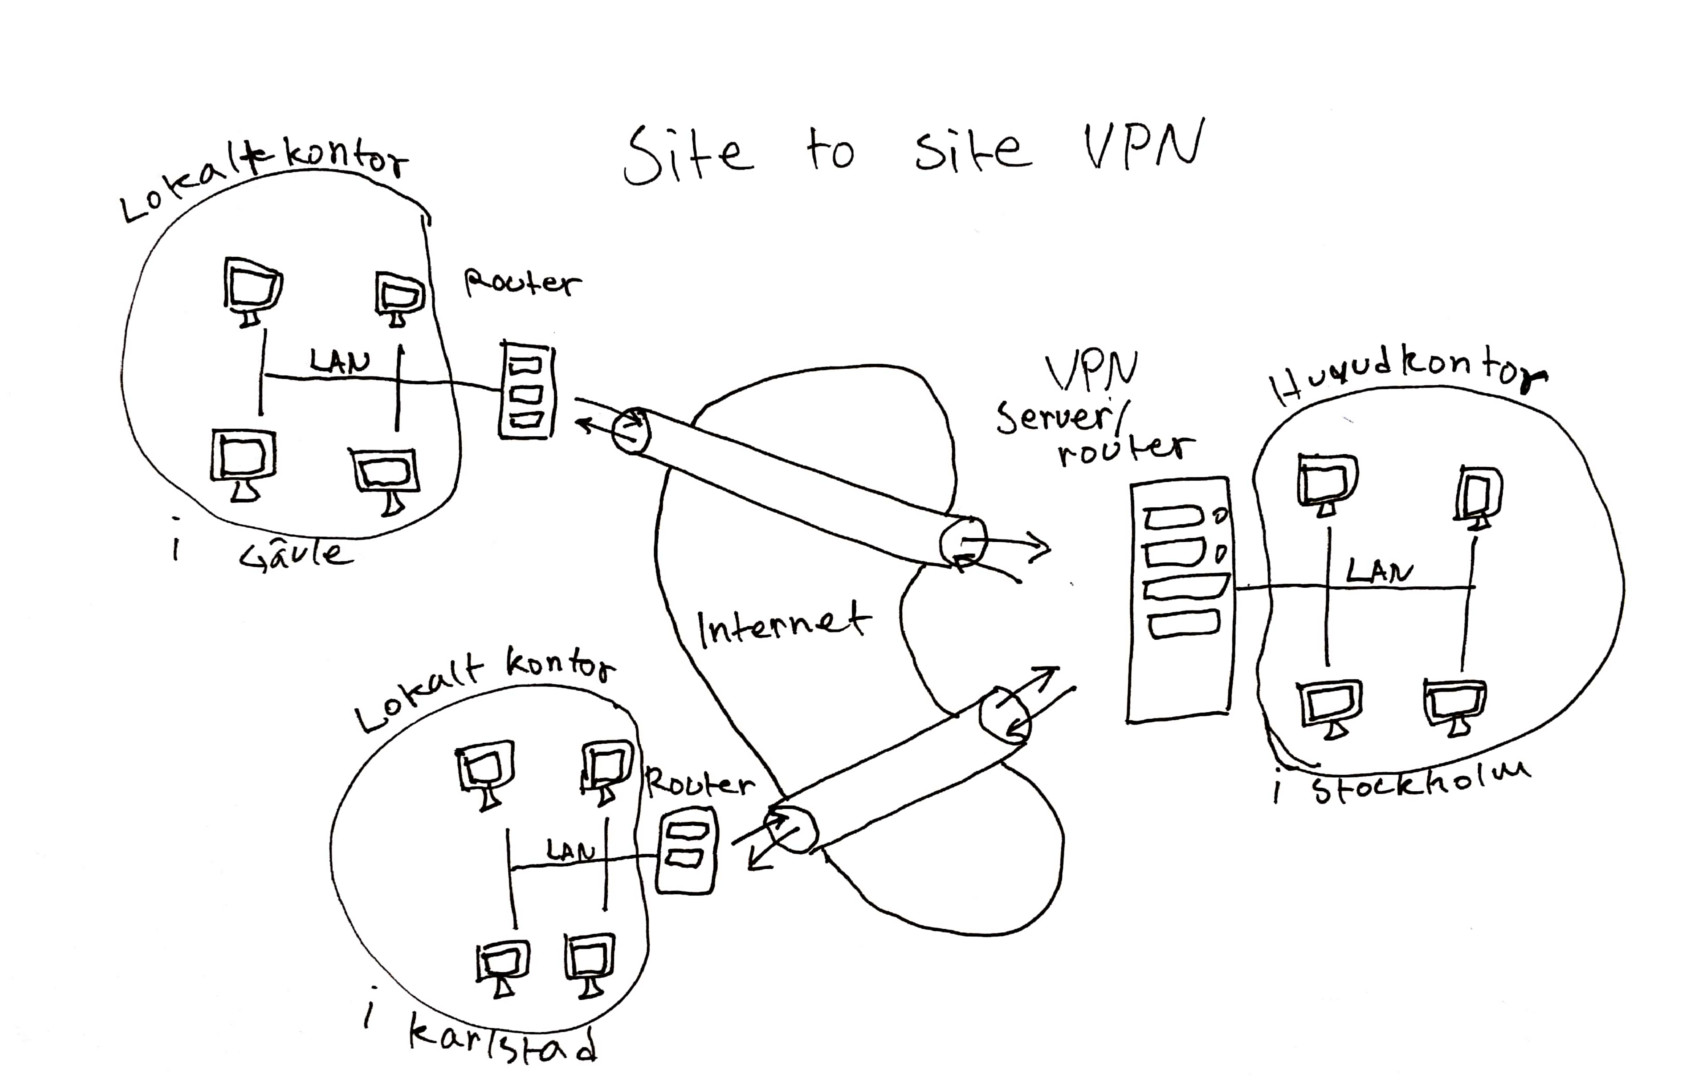 Site to site VPN
Lokalt kontor
Router
LAN
i Gävle
VPN
Server/
router
Huvudkontor
LAN
i Stockholm
Internet
Lokalt kontor
Router
LAN
i karlstad